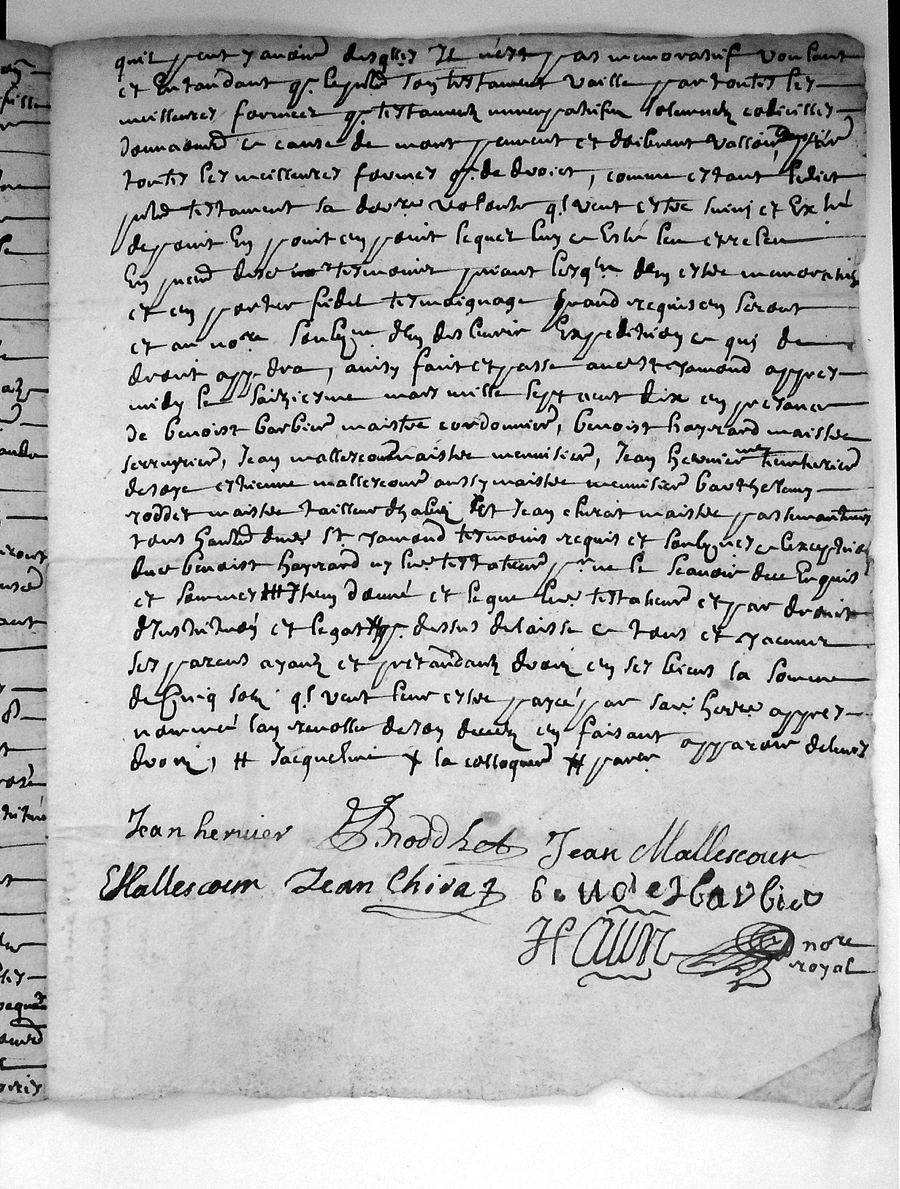 quil peut y avoir desqlles Il nest pas memoratif voulant
et Entandant q. le pnt son testament vaille par toutes les
meilleures formes q. testament nuncupatif solennel codicilles
donnaon a cause de mort peuvent et doibvent valloir
toutes les meilleures formes q. de droict, comme estant ledict
pnt testament sa der.re volonte ql veut estre suivi et Ex.té
de point En point en point lequel luy a Esté leu et releu
En pnce desd tesmoins priant lesq.ls den estre memoratifs
et en porter fidel tesmoignage quand requis en seront
et au no.re soubz.né den deslivrer Expedition a qui de
droit app.dra, ainsy fait et passe audt St chamond appres
midy le saiziesme mars mille sept cent dix en presance
de benoist barbier maistre cordonnier, benoist hayrard maistre
serrurier, Jean mallescour maistre menuisier, Jean hervier me tinturier
de soye estienne mallescour aussy maistre menuisier barthelemy
roddet maistre tailleur dhabitz Et Jean chirat maistre passmantiers
tous habts dud St chamond tesmoins requis et soubznes a lexception
dud benoist hayrard ny led. testateur p.r ne le scavoir de ce Enquis
et sommes # donné et legue led. testateur et par droit
dInstitution et legat # q. dessus delaisse a tous et chacuns
ses parens ayantz et pretandantz droitz en ses biens la somme
de Cinq solz ql veut leur estre payé par sad. herre appres
nommé lan revollu de son decedz en faisant apparoir de leurs
droitz, # Jacqueline + la colloquer # parer
Jean hervier BRoddhet Jean Mallescour
EMallescour Jean Chirat benoit barbier
nore
royal